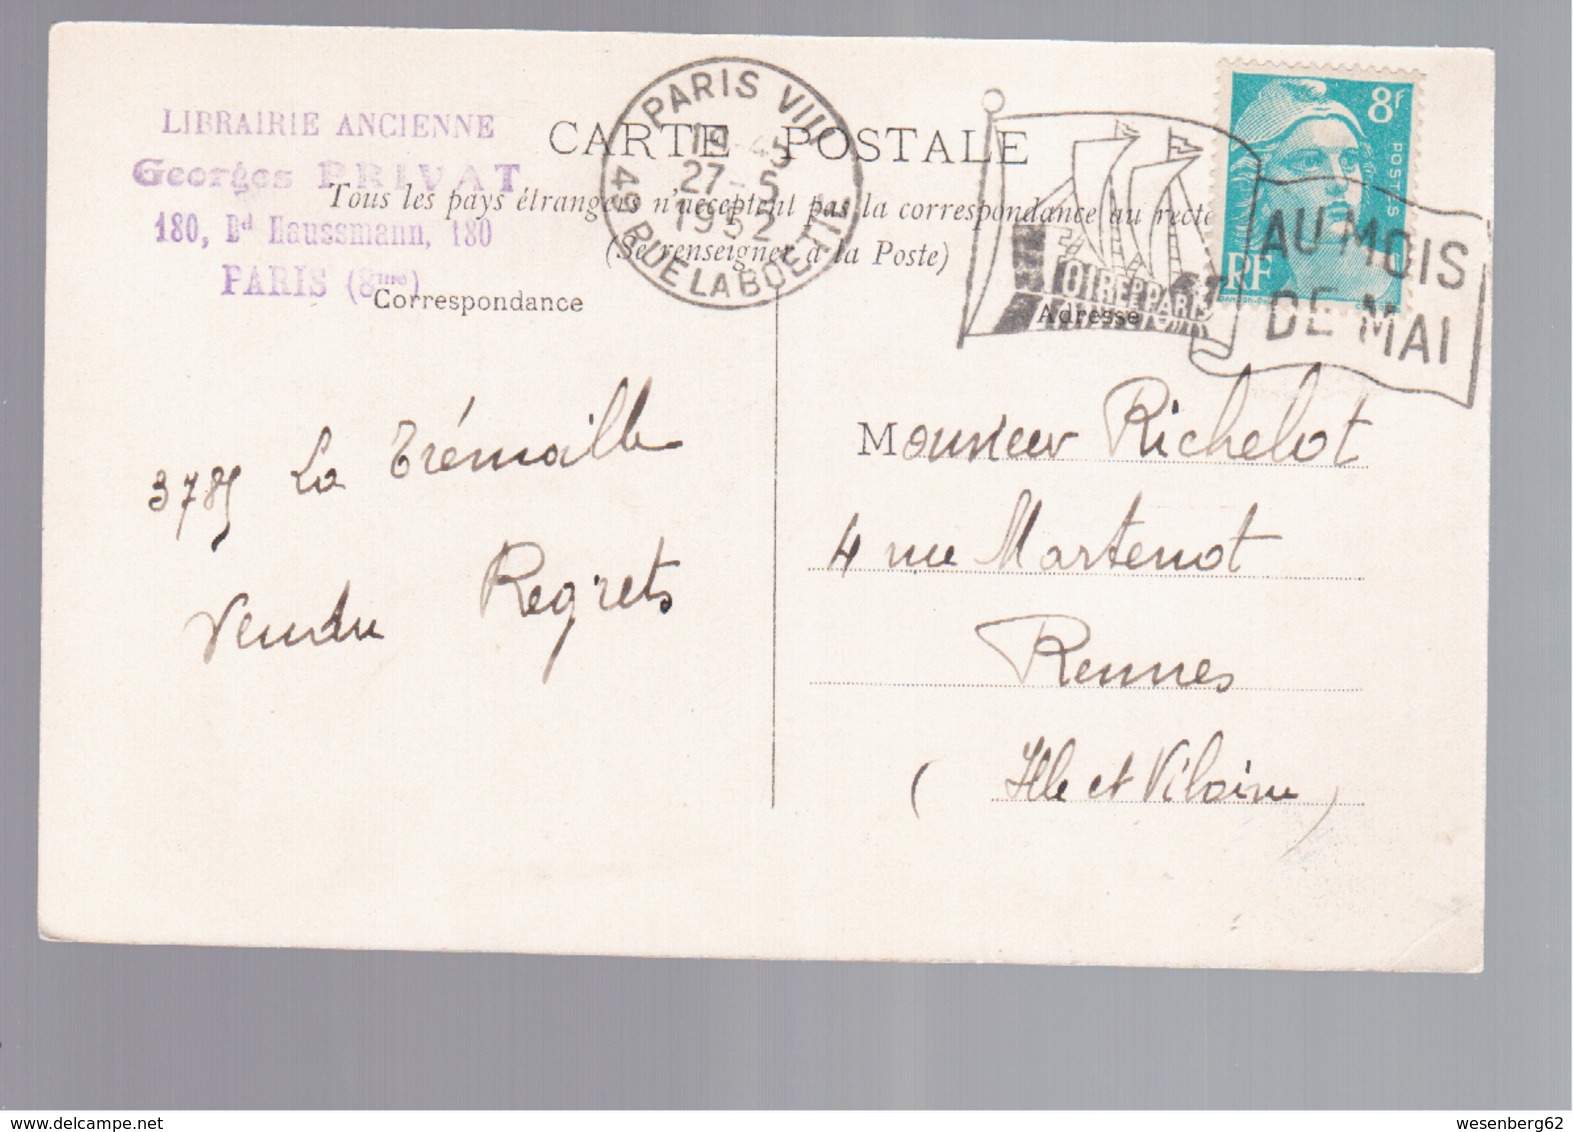 LIBRAIRIE ANCIENNE
Georges PRIVAT
180, Bd Haussmann, 180
PARIS (8me)
PARIS VIII
27-5
1952
49 RUE LA BOETIE
CARTE POSTALE
Tous les pays étrangers n'acceptent pas la correspondance au recto
(Se renseigner à la Poste)
Correspondance
Adresse
FOIRE DE PARIS
AU MOIS
DE MAI
8F
POSTES
RF
3785 La Trémoille
Vendu Regrets
Monsieur Richelot
4 rue Martenot
Rennes
(Ille et Vilaine)
wesenberg62